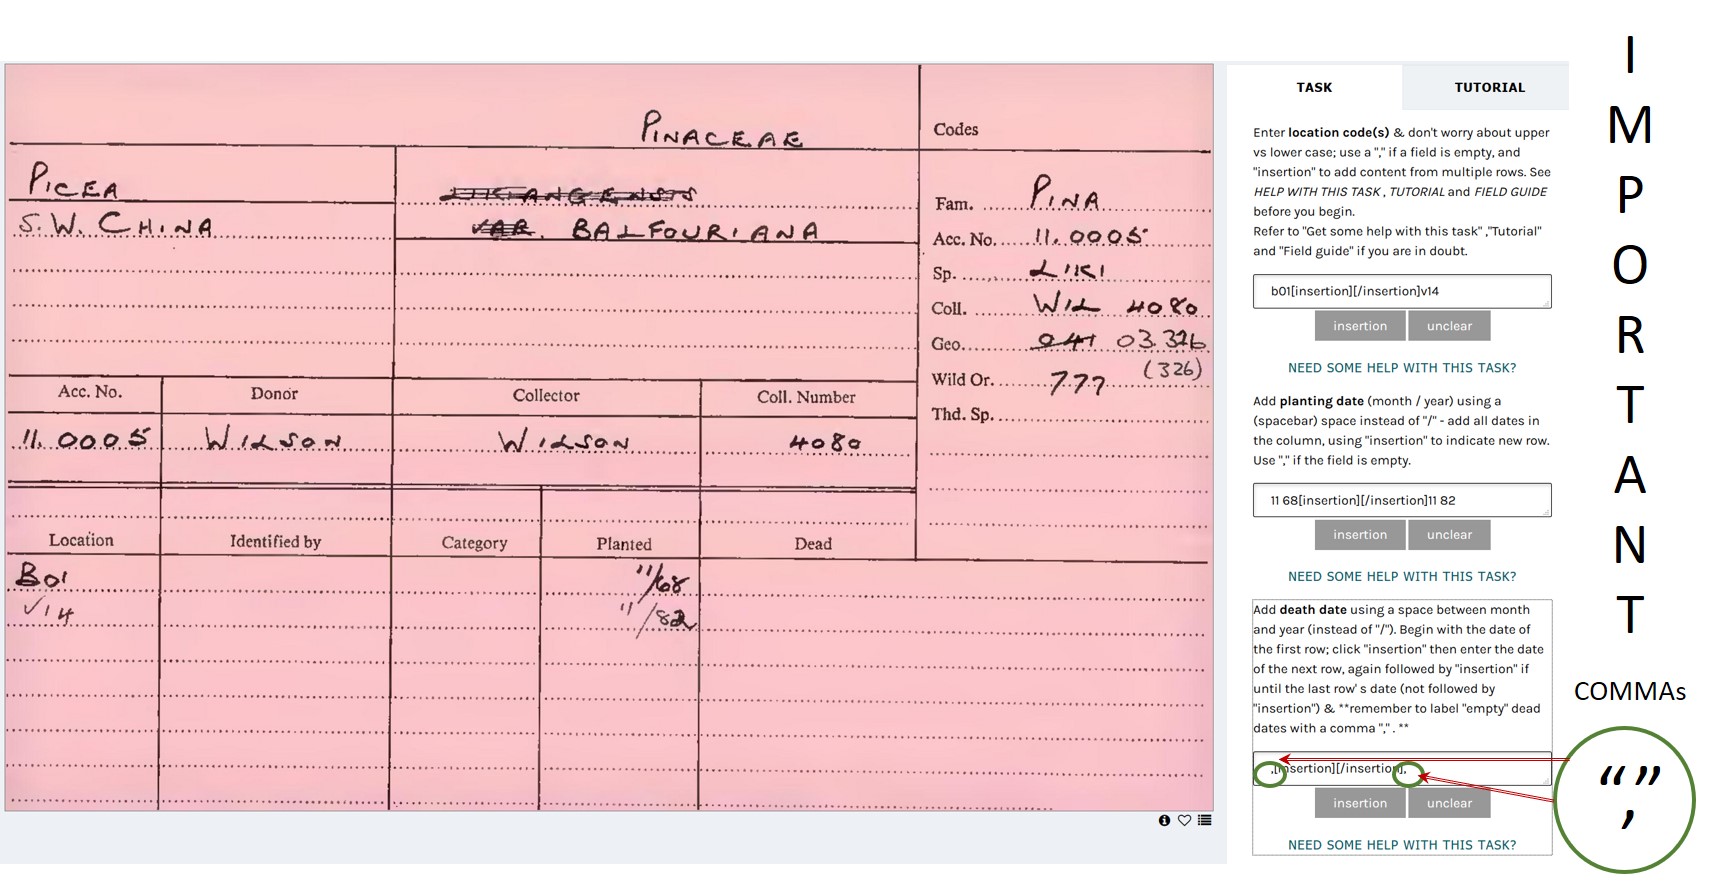 PINACEAE
Codes
PICEA
LIKIANGENSIS
S.W. CHINA
VAR. BALFOURIANA
Fam. PINA
Acc. No. 11.0005
Sp. LIKI
Coll. WIL 4080
Geo. 041 03.326
(326)
Wild Or. 777
Thd. Sp.
Acc. No. Donor Collector Coll. Number
11.0005 WILSON WILSON 4080
Location Identified by Category Planted Dead
B01 11/68
V14 11/82
TASK TUTORIAL
Enter location code(s) & don't worry about upper
vs lower case; use a "," if a field is empty, and
"insertion" to add content from multiple rows. See
HELP WITH THIS TASK , TUTORIAL and FIELD GUIDE
before you begin.
Refer to "Get some help with this task" ,"Tutorial"
and "Field guide" if you are in doubt.
b01[insertion][/insertion]v14
insertion unclear
NEED SOME HELP WITH THIS TASK?
Add planting date (month / year) using a
(spacebar) space instead of "/" - add all dates in
the column, using "insertion" to indicate new row.
Use "," if the field is empty.
11 68[insertion][/insertion]11 82
insertion unclear
NEED SOME HELP WITH THIS TASK?
Add death date using a space between month
and year (instead of "/"). Begin with the date of
the first row; click "insertion" then enter the date
of the next row, again followed by "insertion" if
until the last row' s date (not followed by
"insertion") & **remember to label "empty" dead
dates with a comma "," . **
,[insertion][/insertion],
insertion unclear
NEED SOME HELP WITH THIS TASK?
I
M
P
O
R
T
A
N
T
COMMAs
“”
,